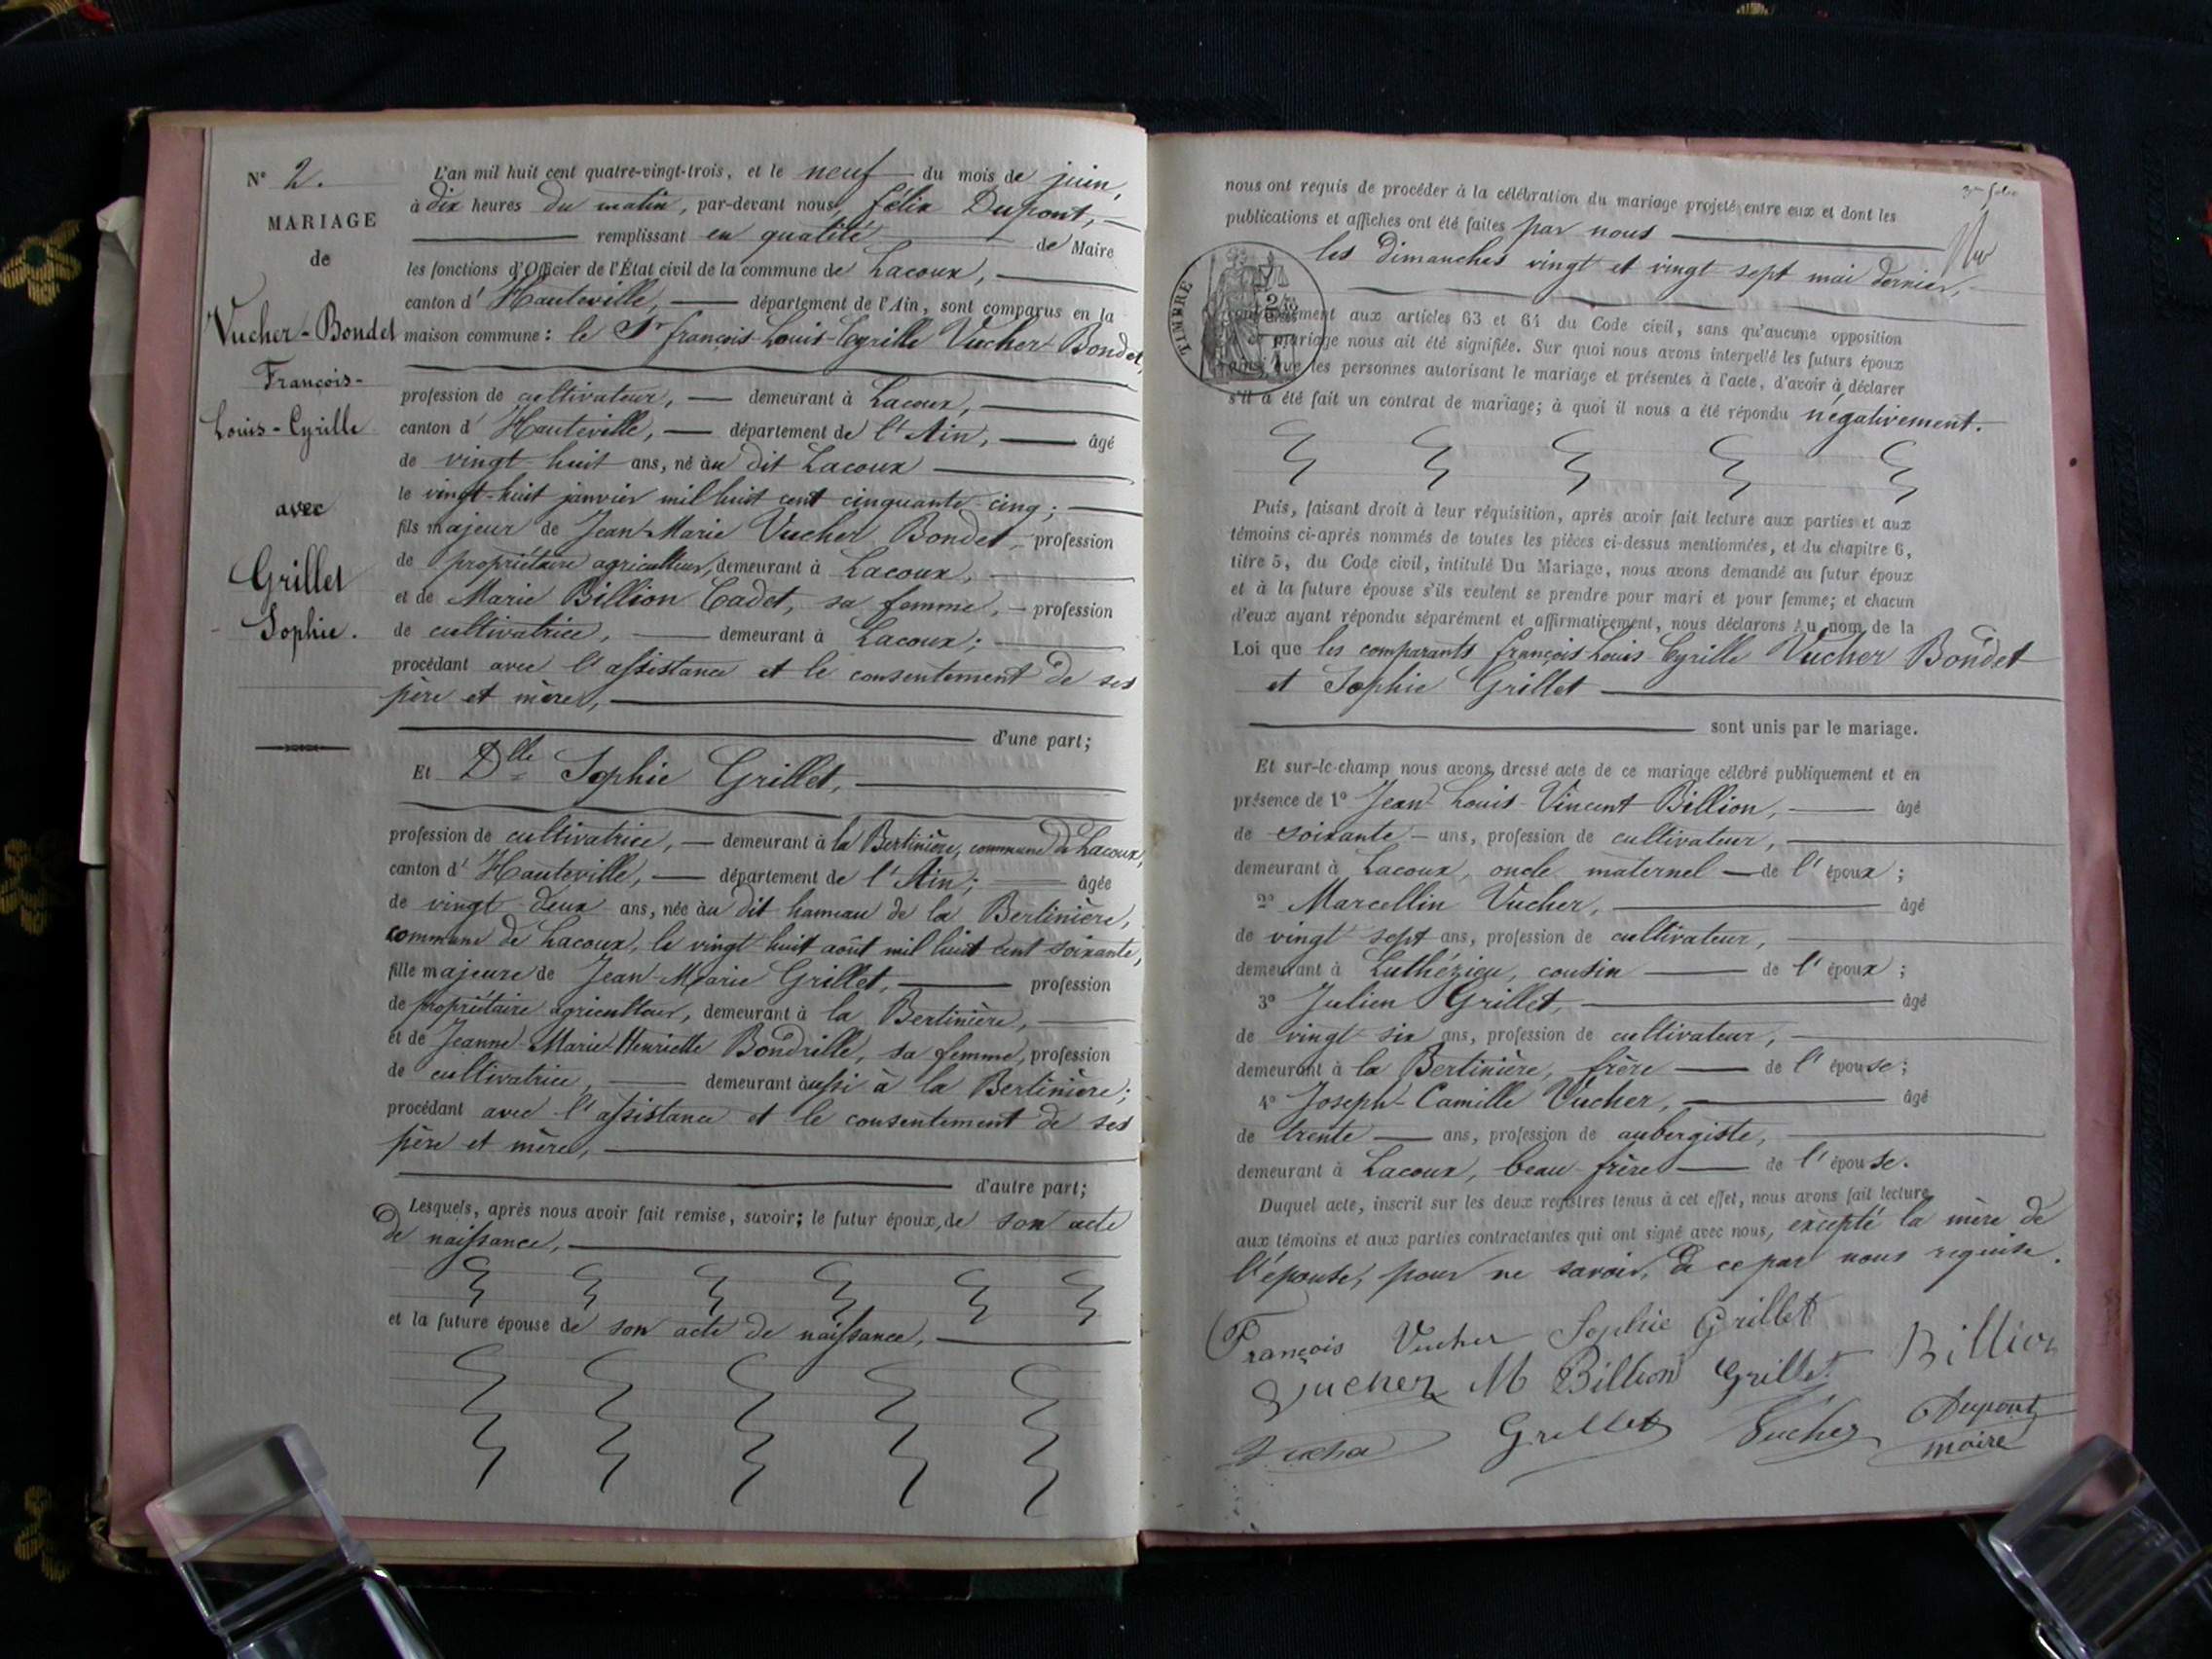 N° 2.
MARIAGE
de
Vucher-Bondet
François-
Louis-Cyrille
avec
Grillet
Sophie.
L'an mil huit cent quatre-vingt-trois, et le neuf du mois de juin,
à dix heures du matin, par-devant nous, félix Dupont,
remplissant en qualité de Maire
les fonctions d'Officier de l'État civil de la commune de Lacoux,
canton d' Hauteville, département de l'Ain, sont comparus en la
maison commune: le Sr françois-Louis-Cyrille Vucher-Bondet,
profession de cultivateur, demeurant à Lacoux,
canton d' Hauteville, département de l'Ain, âgé
de vingt-huit ans, né au dit Lacoux
le vingt-huit janvier mil huit cent cinquante cinq;
fils majeur de Jean-Marie Vucher Bondet, profession
de propriétaire agriculteur, demeurant à Lacoux,
et de Marie Billion Cadet, sa femme, profession
de cultivatrice, demeurant à Lacoux;
procédant avec l'assistance et le consentement de ses
père et mère,
d'une part;
Et Dlle Sophie Grillet,
profession de cultivatrice, demeurant à la Bertinière, commune de Lacoux,
canton d' Hauteville, département de l'Ain; âgée
de vingt-deux ans, née au dit hameau de la Bertinière,
commune de Lacoux, le vingt huit août mil huit cent soixante,
fille majeure de Jean-Marie Grillet, profession
de propriétaire agriculteur, demeurant à la Bertinière,
et de Jeanne-Marie-Henriette Bondrille, sa femme, profession
de cultivatrice, demeurant aussi à la Bertinière;
procédant avec l'assistance et le consentement de ses
père et mère,
d'autre part;
Lesquels, après nous avoir fait remise, savoir; le futur époux, de son acte
de naissance,
et la future épouse de son acte de naissance,
nous ont requis de procéder à la célébration du mariage projeté entre eux et dont les
publications et affiches ont été faites par nous
les dimanches vingt et vingt sept mai dernier,
TIMBRE
conformément aux articles 63 et 64 du Code civil, sans qu'aucune opposition
mariage nous ait été signifiée. Sur quoi nous avons interpellé les futurs époux
ainsi que les personnes autorisant le mariage et présentes à l'acte, d'avoir à déclarer
s'il a été fait un contrat de mariage; à quoi il nous a été répondu négativement.
Puis, faisant droit à leur réquisition, après avoir fait lecture aux parties et aux
témoins ci-après nommés de toutes les pièces ci-dessus mentionnées, et du chapitre 6,
titre 5, du Code civil, intitulé Du Mariage, nous avons demandé au futur époux
et à la future épouse s'ils veulent se prendre pour mari et pour femme; et chacun
d'eux ayant répondu séparément et affirmativement, nous déclarons Au nom de la
Loi que les comparants françois-Louis-Cyrille Vucher Bondet
et Sophie Grillet
sont unis par le mariage.
Et sur-le-champ nous avons dressé acte de ce mariage célébré publiquement et en
présence de 1° Jean-Louis-Vincent Billion, âgé
de soixante ans, profession de cultivateur,
demeurant à Lacoux, oncle maternel de l'époux;
2° Marcellin Vucher, âgé
de vingt sept ans, profession de cultivateur,
demeurant à Luthézieu, cousin de l'époux;
3° Julien Grillet, âgé
de vingt six ans, profession de cultivateur,
demeurant à la Bertinière, frère de l'épouse;
4° Joseph-Camille Vucher, âgé
de trente ans, profession de aubergiste,
demeurant à Lacoux, beau-frère de l'épouse.
Duquel acte, inscrit sur les deux registres tenus à cet effet, nous avons fait lecture
aux témoins et aux parties contractantes qui ont signé avec nous, excepté la mère de
l'épouse, pour ne savoir, de ce par nous requise.
François Vucher Sophie Grillet Billion
Vucher M Billion Grillet
Grillet Vucher Dupont
maire